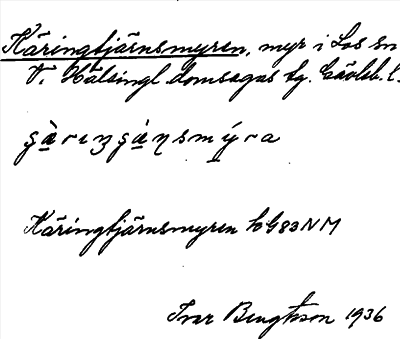 Käringtjärnsmyren, myr i Los sn
V. Hälsingl. domsagas tg. Gävleb. l.
Käringtjärnsmyren hG83NM
Ivar Bengtsson 1936